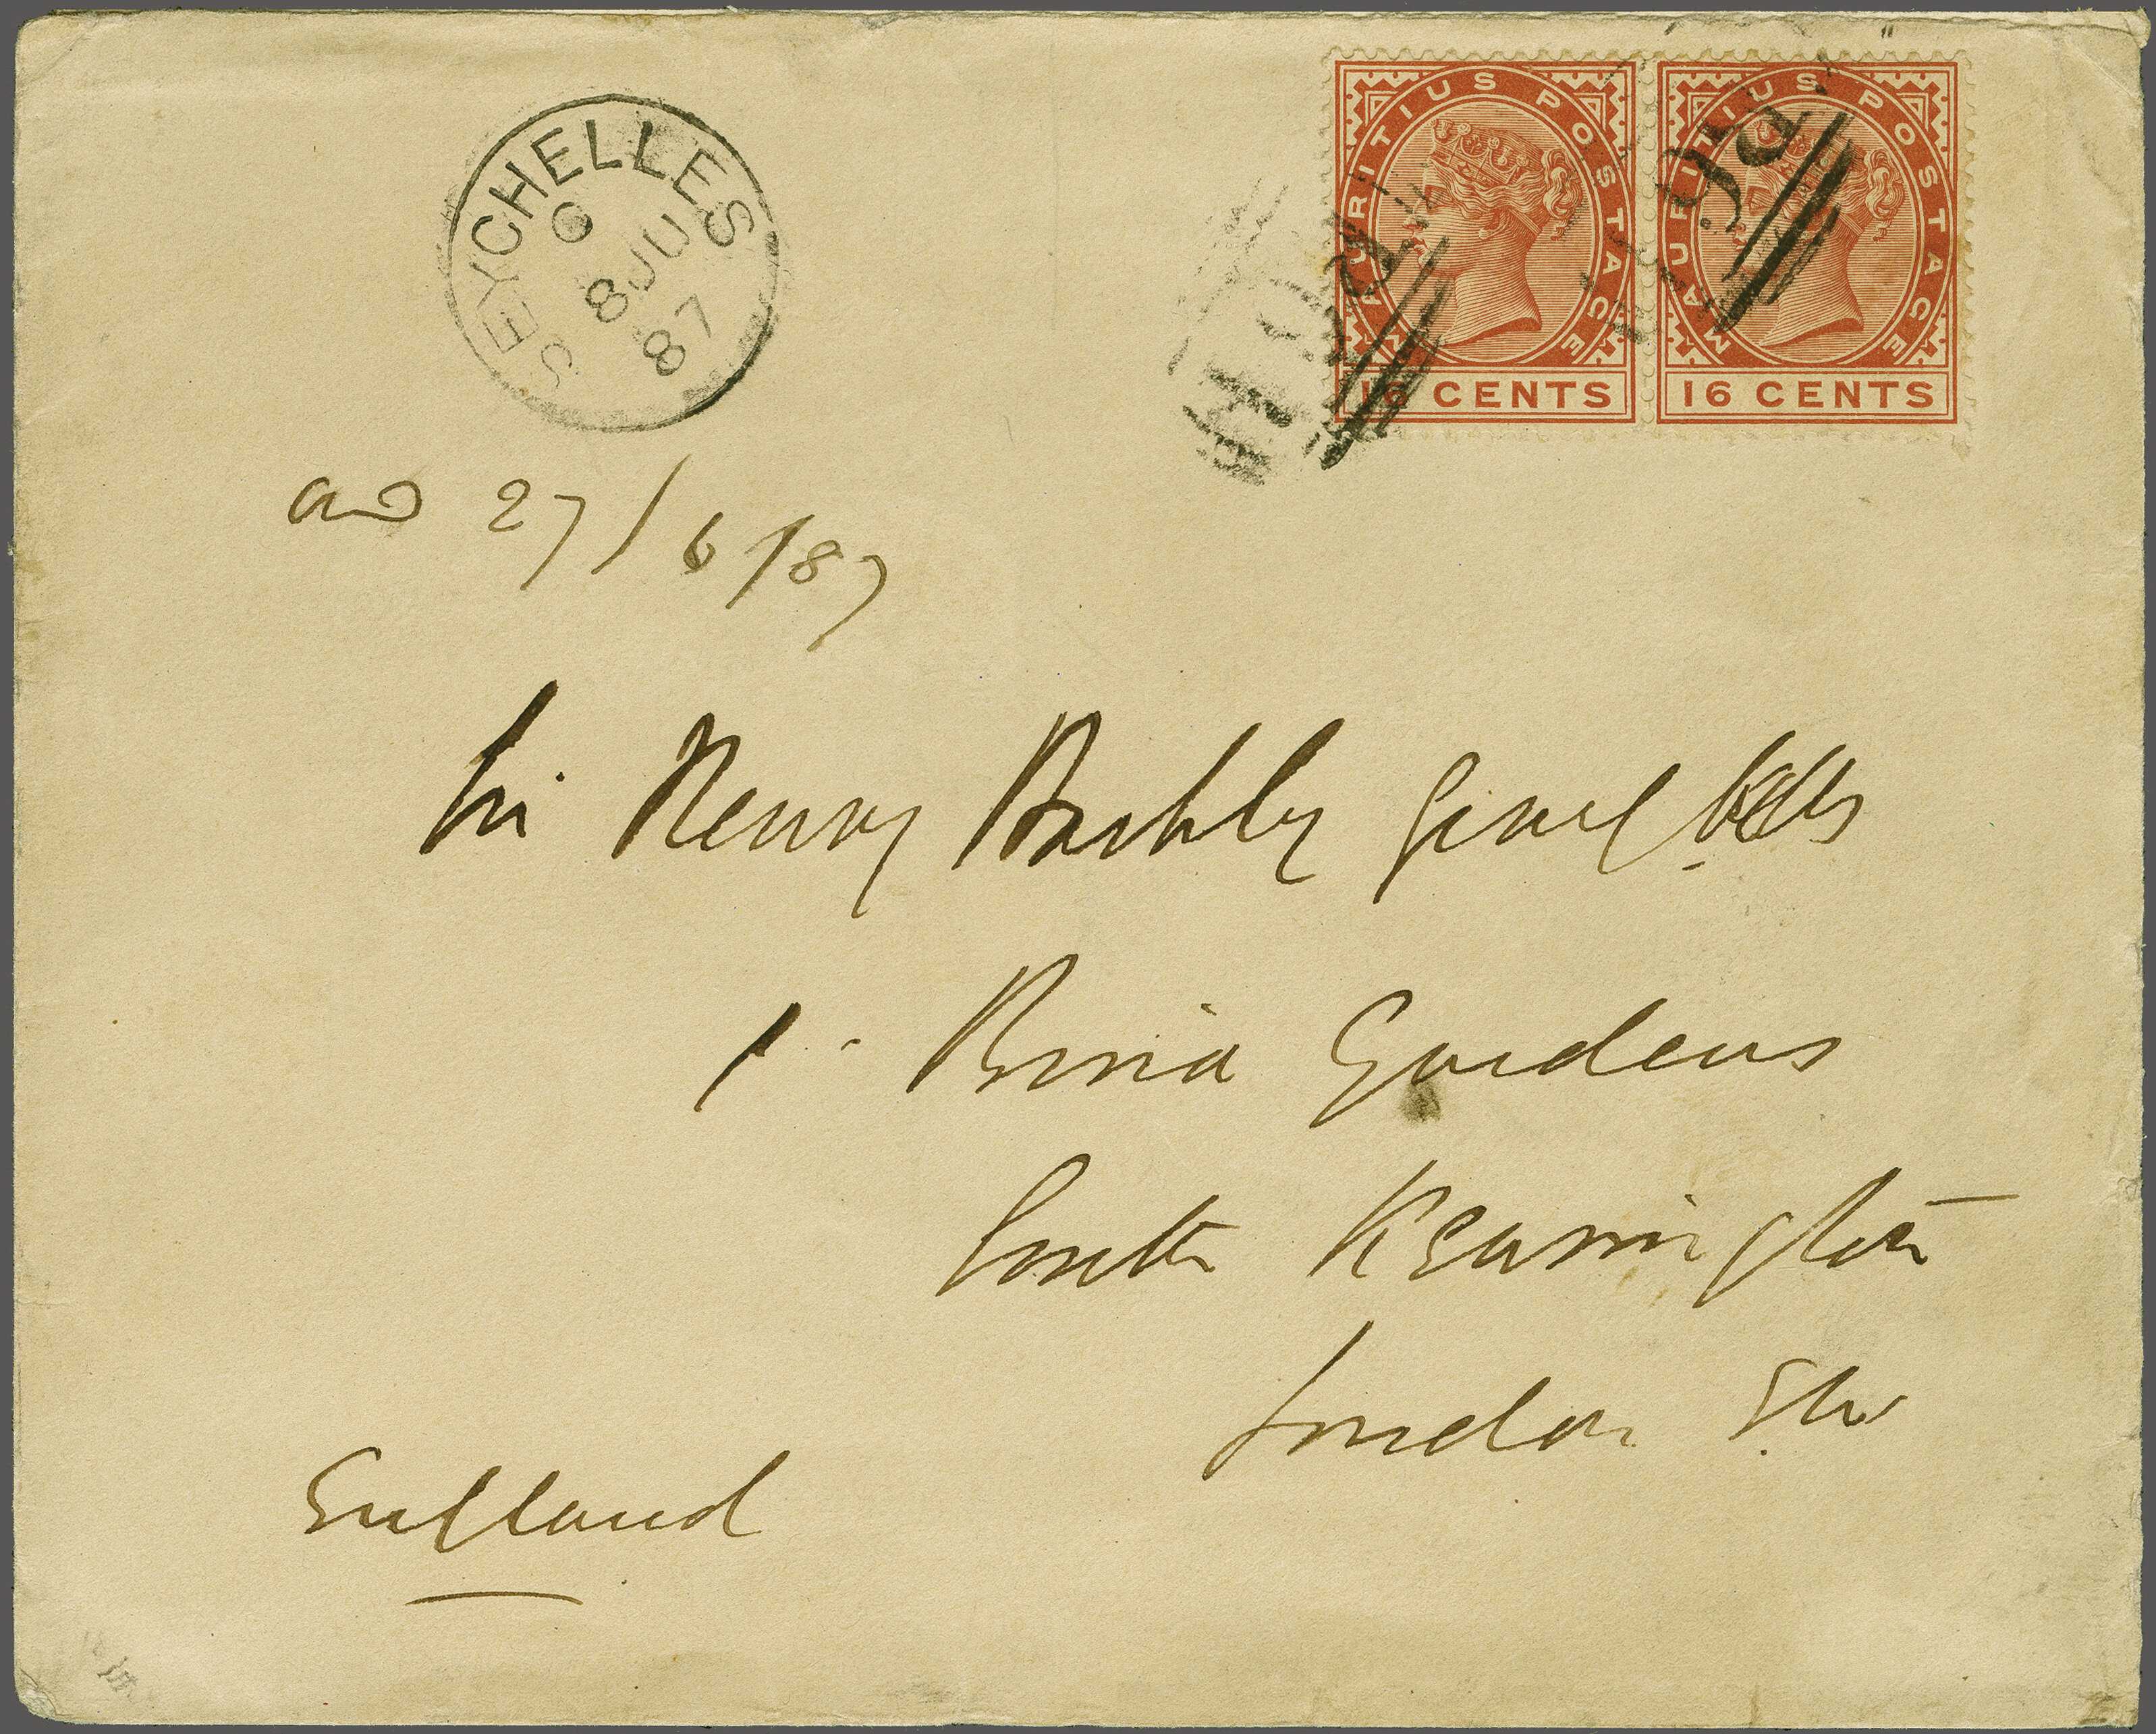 SEYCHELLES
C
8 JU
87
MAURITIUS POSTAGE
16 CENTS
MAURITIUS POSTAGE
16 CENTS
B64
B64
27/6/87
Sir Henry Barkly
1. Bina Gardens
South Kensington
London SW
England